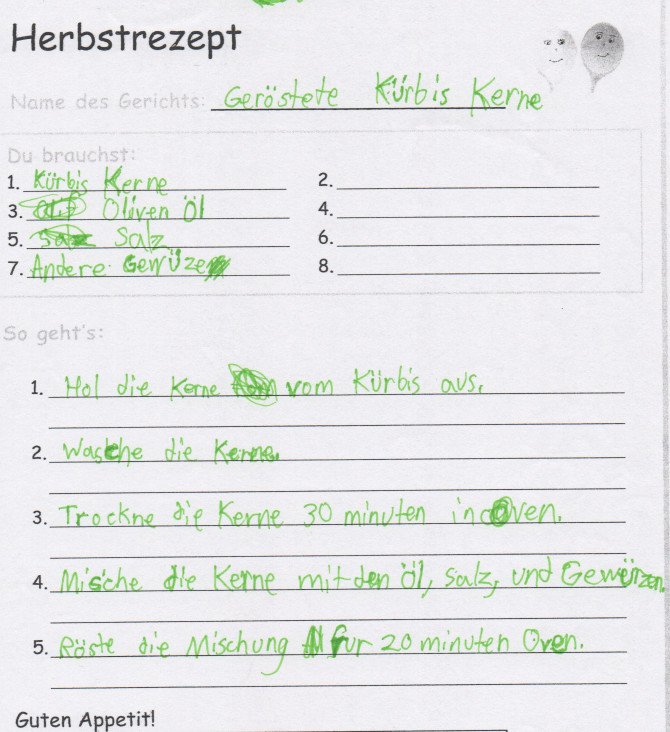 Herbstrezept
Name des Gerichts: Geröstete Kürbis Kerne
Du brauchst:
1. Kürbis Kerne 2.
3. Oliven Öl 4.
5. Salz 6.
7. Andere Gewüze 8.
So geht's:
1. Hol die Kerne vom Kürbis aus.
2. Wasche die Kerne.
3. Trockne die Kerne 30 minuten in Oven.
4. Mische die Kerne mit den öl, salz, und Gewürzen.
5. Röste die Mischung fur 20 minuten Oven.
Guten Appetit!